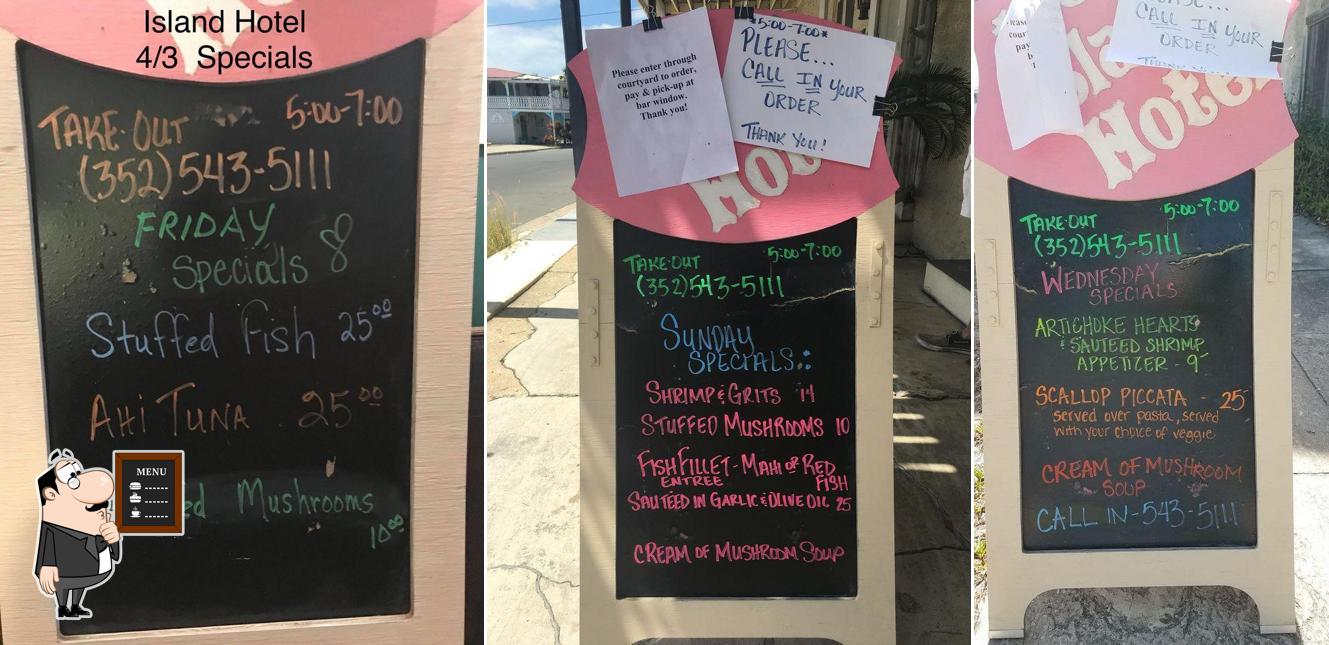 Island Hotel
4/3 Specials
TAKE-OUT 5:00-7:00
(352)543-5111
FRIDAY
Specials
Stuffed Fish 25⁰⁰
AHi TUNA 25⁰⁰
ed Mushrooms
10⁰⁰
MENU
Please enter through
courtyard to order,
pay & pick-up at
bar window.
Thank you!
*5:00-7:00*
PLEASE...
CALL IN YOUR
ORDER
THANK YOU!
HOT
TAKE-OUT 5:00-7:00
(352)543-5111
SUNDAY
SPECIALS:
SHRIMP & GRITS 14
STUFFED MUSHROOMS 10
FISH FILLET - MAHI OR RED
ENTREE FISH
SAUTEED IN GARLIC & OLIVE OIL 25
CREAM OF MUSHROOM SOUP
CALL IN YOUR
ORDER
Hotel
TAKE-OUT 5:00-7:00
(352)543-5111
WEDNESDAY
SPECIALS
ARTICHOKE HEARTS
& SAUTEED SHRIMP
APPETIZER - 9-
SCALLOP PICCATA - 25
served over pasta, served
with your choice of veggie
CREAM OF MUSHROOM
SOUP
CALL IN - 543-5111